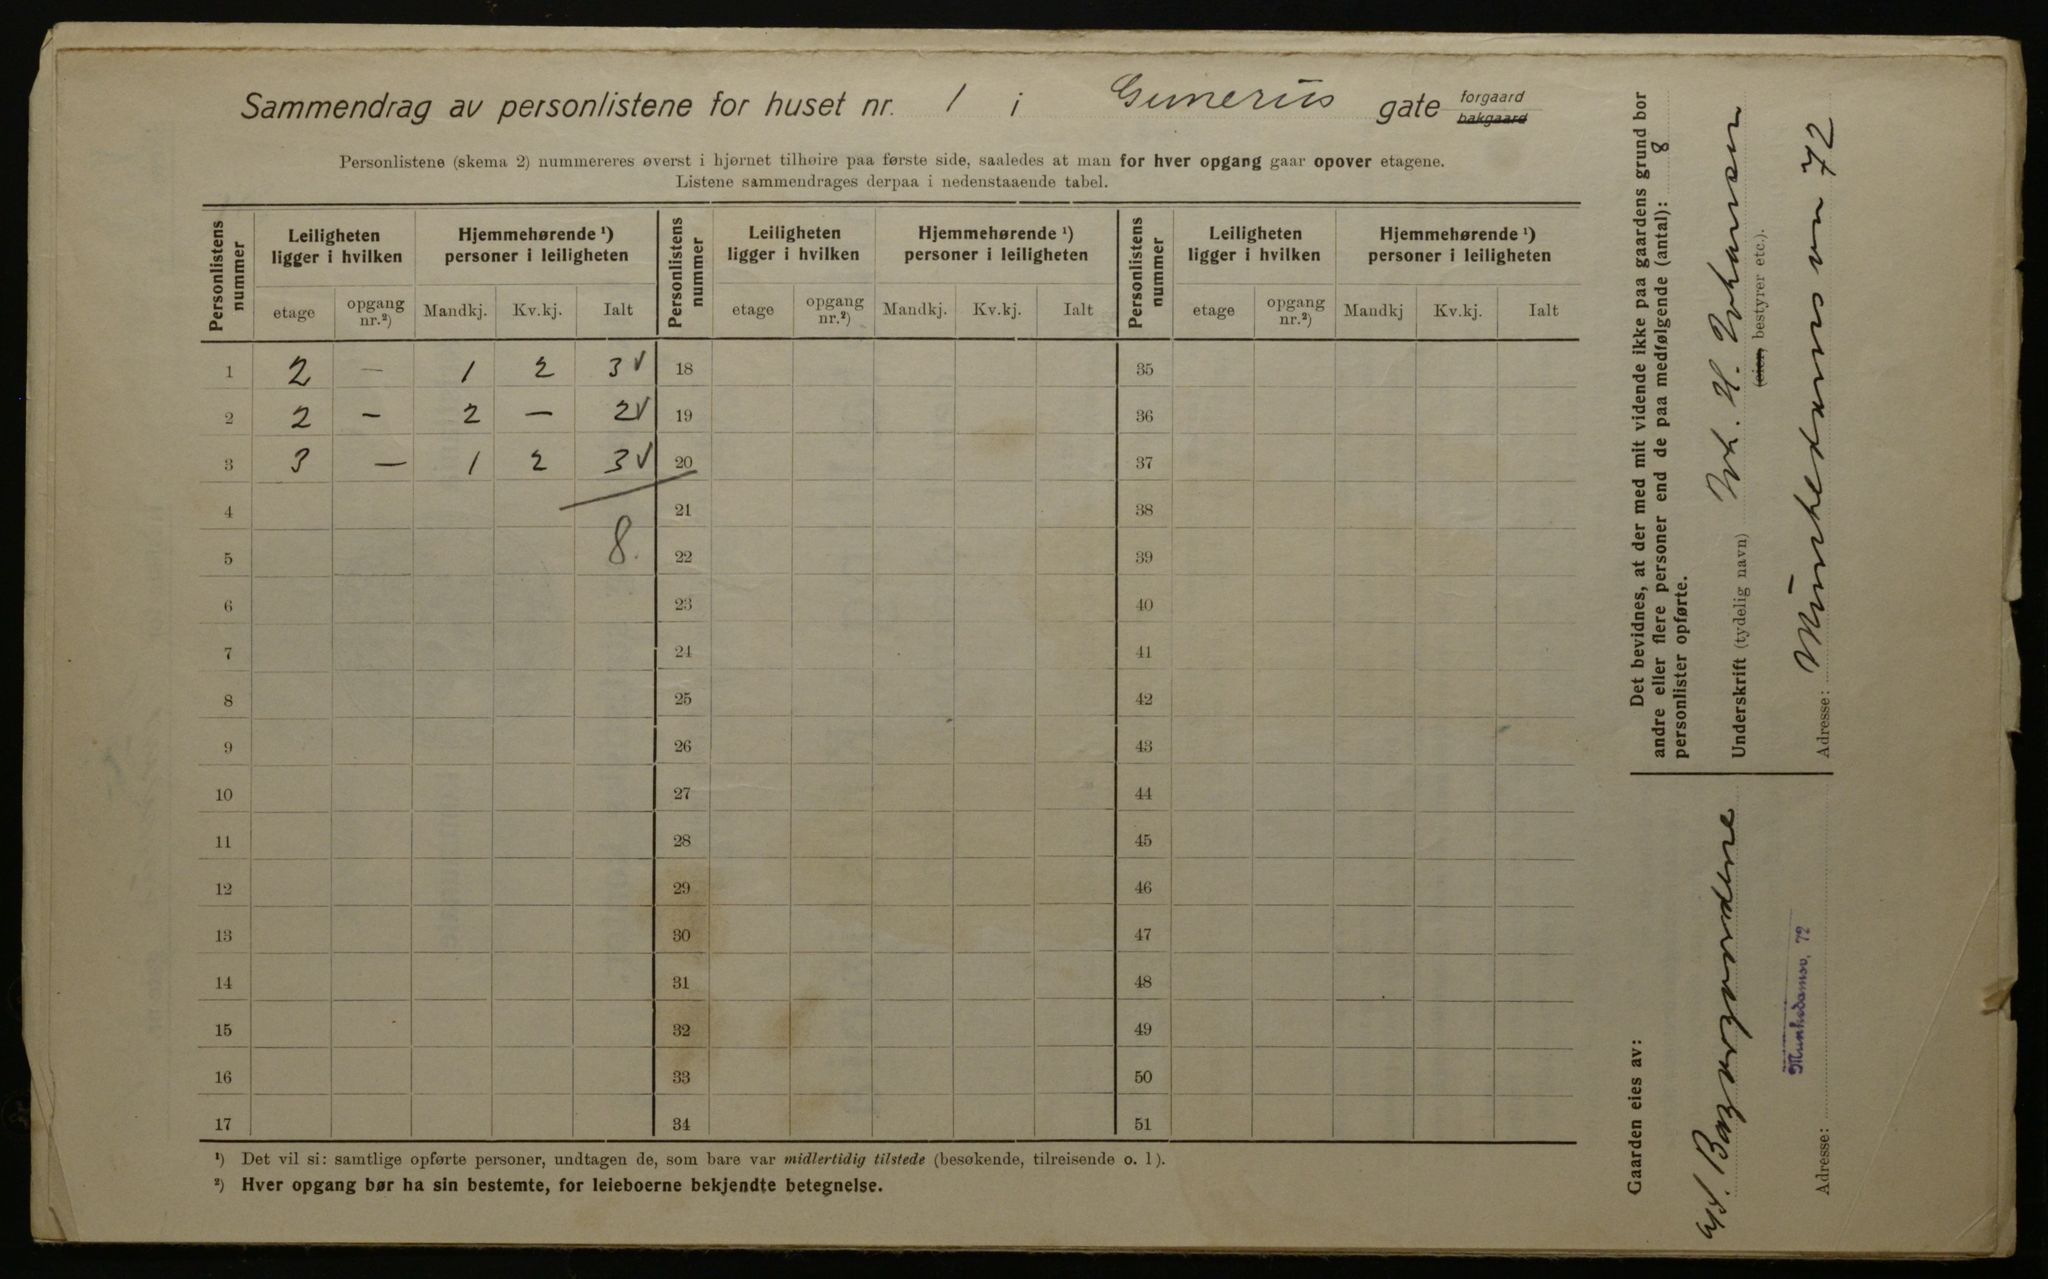 Sammendrag av personlistene for huset nr. 1 i Gunerius gate forgaard bakgaard
Personlistene (skema 2) nummereres øverst i hjørnet tilhøire paa første side, saaledes at man for hver opgang gaar opover etagene.
Listene sammendrages derpaa i nedenstaaende tabel.
Personlistens nummer Leiligheten ligger i hvilken Hjemmehørende ¹) personer i leiligheten Personlistens nummer Leiligheten ligger i hvilken Hjemmehørende ¹) personer i leiligheten Personlistens nummer Leiligheten ligger i hvilken Hjemmehørende ¹) personer i leiligheten
etage opgang nr.²) Mandkj. Kv.kj. Ialt etage opgang nr.²) Mandkj. Kv.kj. Ialt etage opgang nr.²) Mandkj Kv.kj. Ialt
1 2 — 1 2 3 v 18 35
2 2 — 2 — 2 v 19 36
3 3 — 1 2 3 v 20 37
4 21 38
5 8. 22 39
6 23 40
7 24 41
8 25 42
9 26 43
10 27 44
11 28 45
12 29 46
13 30 47
14 31 48
15 32 49
16 33 50
17 34 51
¹) Det vil si: samtlige opførte personer, undtagen de, som bare var midlertidig tilstede (besøkende, tilreisende o. l).
²) Hver opgang bør ha sin bestemte, for leieboerne bekjendte betegnelse.
Det bevidnes, at der med mit vidende ikke paa gaardens grund bor
andre eller flere personer end de paa medfølgende (antal): 8
personlister opførte.
Underskrift (tydelig navn) Joh. H. Johansen
(eier, bestyrer etc.).
Adresse: Munkedamsvn 72
Gaarden eies av:
Munkedamsv. 72
Adresse: